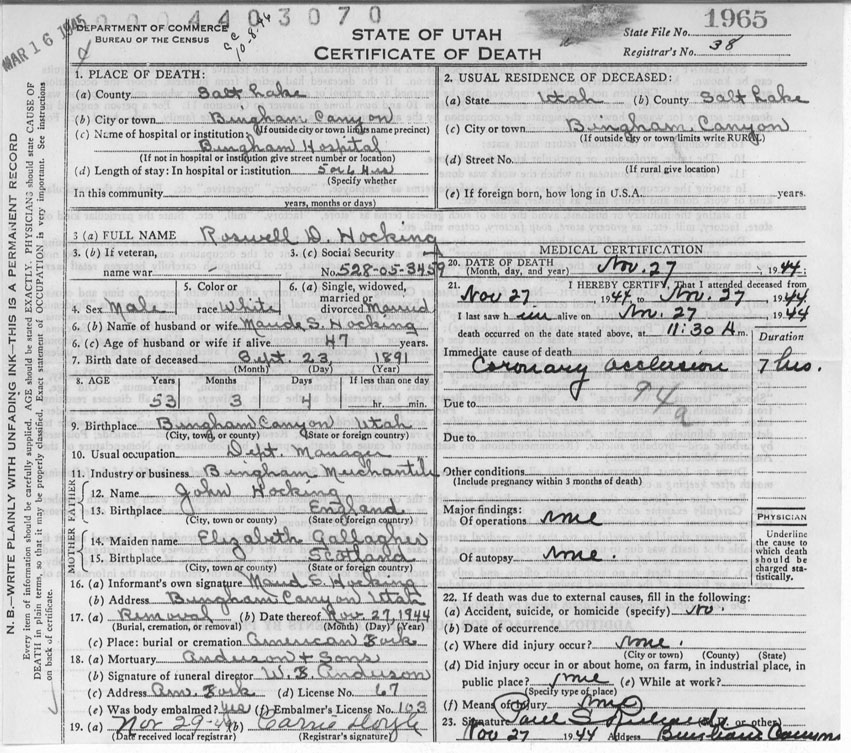 4403070
MAR 16 1945
DEPARTMENT OF COMMERCE
BUREAU OF THE CENSUS
10-8-46
STATE OF UTAH
CERTIFICATE OF DEATH
1965
State File No.
Registrar's No. 38
N. B.—WRITE PLAINLY WITH UNFADING INK—THIS IS A PERMANENT RECORD
Every item of information should be carefully supplied. AGE should be stated EXACTLY. PHYSICIANS should state CAUSE OF
DEATH in plain terms, so that it may be properly classified. Exact statement of OCCUPATION is very important. See instructions
on back of certificate.
1. PLACE OF DEATH:
(a) County Salt Lake
(b) City or town Bingham Canyon
(If outside city or town limits name precinct)
(c) Name of hospital or institution:
Bingham Hospital
(If not in hospital or institution give street number or location)
(d) Length of stay: In hospital or institution 5 or 6 Hrs
(Specify whether
In this community
years, months or days)
2. USUAL RESIDENCE OF DECEASED:
(a) State Utah (b) County Salt Lake
(c) City or town Bingham Canyon
(If outside city or town limits write RURAL)
(d) Street No.
(If rural give location)
(e) If foreign born, how long in U.S.A. years.
3 (a) FULL NAME Roswell D. Hocking
3. (b) If veteran,
name war -
3. (c) Social Security
No. 528-05-3459
4. Sex Male
5. Color or
race White
6. (a) Single, widowed,
married or
divorced Married
6. (b) Name of husband or wife Maude S. Hocking
6. (c) Age of husband or wife if alive 47 years.
7. Birth date of deceased Sept. 23, 1891
(Month) (Day) (Year)
8. AGE Years Months Days If less than one day
53 3 4 hr. min.
9. Birthplace Bingham Canyon Utah
(City, town, or county) (State or foreign country)
10. Usual occupation Dept. Manager
11. Industry or business Bingham Merchantile
FATHER
12. Name John Hocking
13. Birthplace England
(City, town or county) (State or foreign country)
MOTHER
14. Maiden name Elizabeth Gallagher
15. Birthplace Scotland
(City, town or county) (State or foreign country)
16. (a) Informant's own signature Maud S. Hocking
(b) Address Bingham Canyon Utah
17. (a) Removal (b) Date thereof Nov. 27, 1944
(Burial, cremation, or removal) (Month) (Day) (Year)
(c) Place: burial or cremation American Fork
18. (a) Mortuary Anderson & Sons
(b) Signature of funeral director W. B. Anderson
(c) Address Am. Fork (d) License No. 67
(e) Was body embalmed? yes (f) Embalmer's License No. 103
19. (a) Nov 29-44 (b) Carrie
(Date received local registrar) (Registrar's signature)
MEDICAL CERTIFICATION
20. DATE OF DEATH
(Month, day, and year) Nov. 27, 1944:
21. I HEREBY CERTIFY, That I attended deceased from
Nov 27, 1944, to Nov. 27, 1944.
I last saw him alive on Nov. 27, 1944
death occurred on the date stated above, at 11:30 A m.
Duration
Immediate cause of death
Coronary occlusion 7 hrs.
94a
Due to
Due to
Other conditions
(Include pregnancy within 3 months of death)
Major findings:
Of operations none
Of autopsy none.
PHYSICIAN
Underline
the cause to
which death
should be
charged sta-
tistically.
22. If death was due to external causes, fill in the following:
(a) Accident, suicide, or homicide (specify) no.
(b) Date of occurrence
(c) Where did injury occur? none.
(City or town) (County) (State)
(d) Did injury occur in or about home, on farm, in industrial place, in
public place? none (e) While at work?
(Specify type of place)
(f) Means of injury none
23. Signature Paul S. (M. D. or other)
Nov 27 1944 Address Bingham Canyon